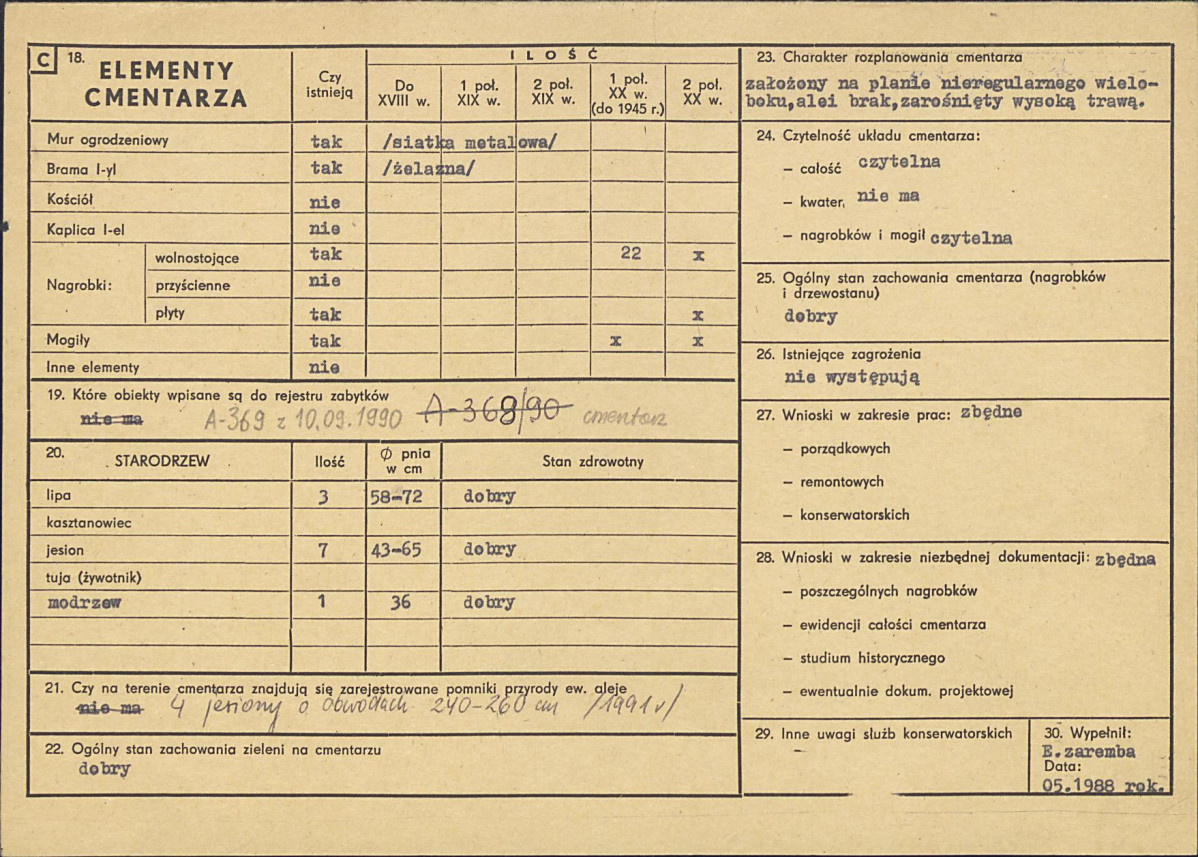 C 18. ELEMENTY CMENTARZA
Czy istnieją
I L O Ś Ć
Do XVIII w.
1 poł. XIX w.
2 poł. XIX w.
1 poł. XX w. (do 1945 r.)
2 poł. XX w.
Mur ogrodzeniowy tak /siatka metalowa/
Brama I-yl tak /żelazna/
Kościół nie
Kaplica I-el nie
Nagrobki:
wolnostojące tak 22 x
przyścienne nie
płyty tak x
Mogiły tak x x
Inne elementy nie
19. Które obiekty wpisane są do rejestru zabytków
nie ma A-369 z 10.09.1990 A-368/90 cmentarz
20. STARODRZEW Ilość Ø pnia w cm Stan zdrowotny
lipa 3 58-72 dobry
kasztanowiec
jesion 7 43-65 dobry
tuja (żywotnik)
modrzew 1 36 dobry
21. Czy na terenie cmentarza znajdują się zarejestrowane pomniki przyrody ew. aleje
nie ma 4 jesiony o obwodach 240-260 cm /1991 r/
22. Ogólny stan zachowania zieleni na cmentarzu
dobry
23. Charakter rozplanowania cmentarza
założony na planie nieregularnego wielo-
boku,alei brak,zarośnięty wysoką trawą.
24. Czytelność układu cmentarza:
– całość czytelna
– kwater, nie ma
– nagrobków i mogił czytelna
25. Ogólny stan zachowania cmentarza (nagrobków
i drzewostanu)
dobry
26. Istniejące zagrożenia
nie występują
27. Wnioski w zakresie prac: zbędne
– porządkowych
– remontowych
– konserwatorskich
28. Wnioski w zakresie niezbędnej dokumentacji: zbędna
– poszczególnych nagrobków
– ewidencji całości cmentarza
– studium historycznego
– ewentualnie dokum. projektowej
29. Inne uwagi służb konserwatorskich
–
30. Wypełnił:
E.zaremba
Data:
05.1988 rok.